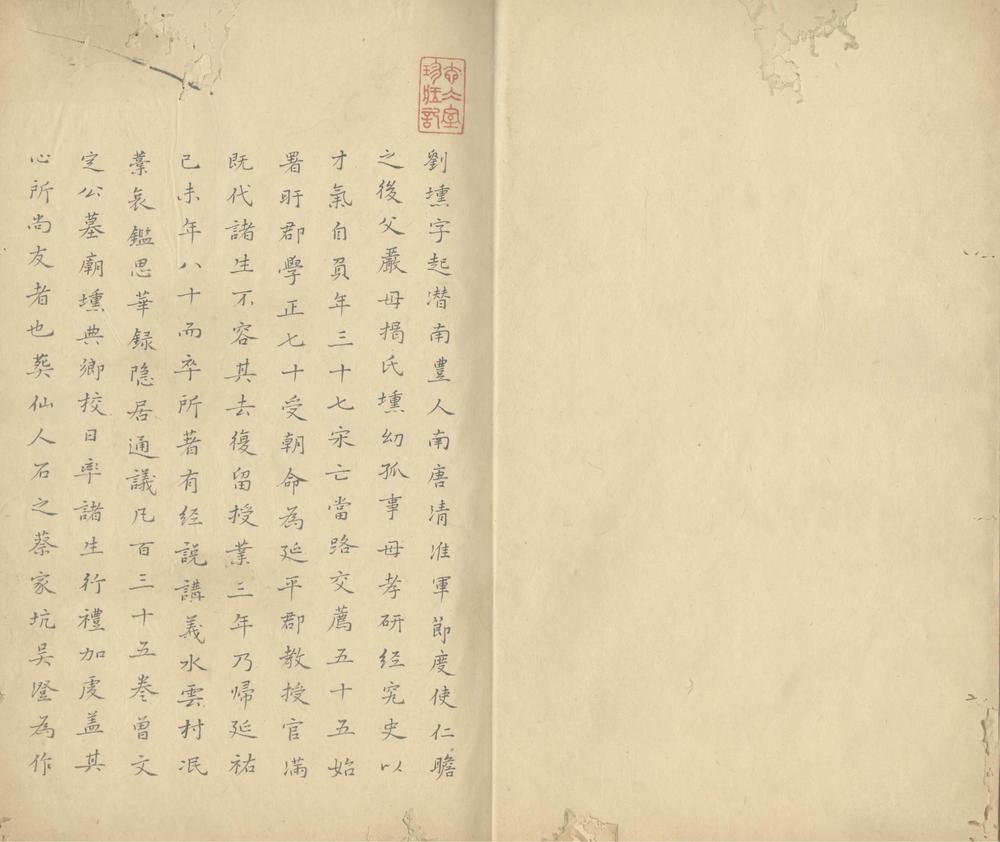 劉壎字起潜南豐人南唐清淮軍節度使仁瞻
之後父嚴母揭氏壎幼孤事母孝研经究史以
才氣自負年三十七宋亡當路交薦五十五始
署旴郡學正七十受朝命為延平郡教授官滿
既代諸生不容其去復留授業三年乃歸延祐
己未年八十而卒所著有经説講義水雲村泯
藁哀鑑思華録隐居通議凡百三十五卷曾文
定公墓廟壎典鄉校日率諸生行禮加虔盖其
心所尚友者也葬仙人石之蔡家坑吴澄為作